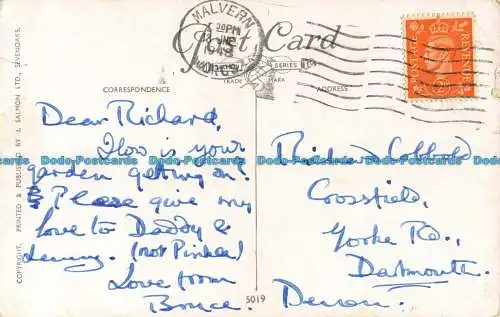 MALVERN
30 PM
1948
WORCS
Post Card
POSTAGE
REVENUE
SERIES
TRADE
MARK
CORRESPONDENCE
ADDRESS
COPYRIGHT. PRINTED & PUBLISHED BY J. SALMON LTD., SEVENOAKS.
Dear Richard,
How is your
garden getting on?
Please give my
love to Daddy &
Lenny. (not Pinkie)
Love from
Bruce.
5019
Richard
Crossfield,
Yorke Rd.,
Dartmouth.
Devon.
Dodo-Postcards Dodo-Postcards Dodo-Postcards Dodo-Postcards